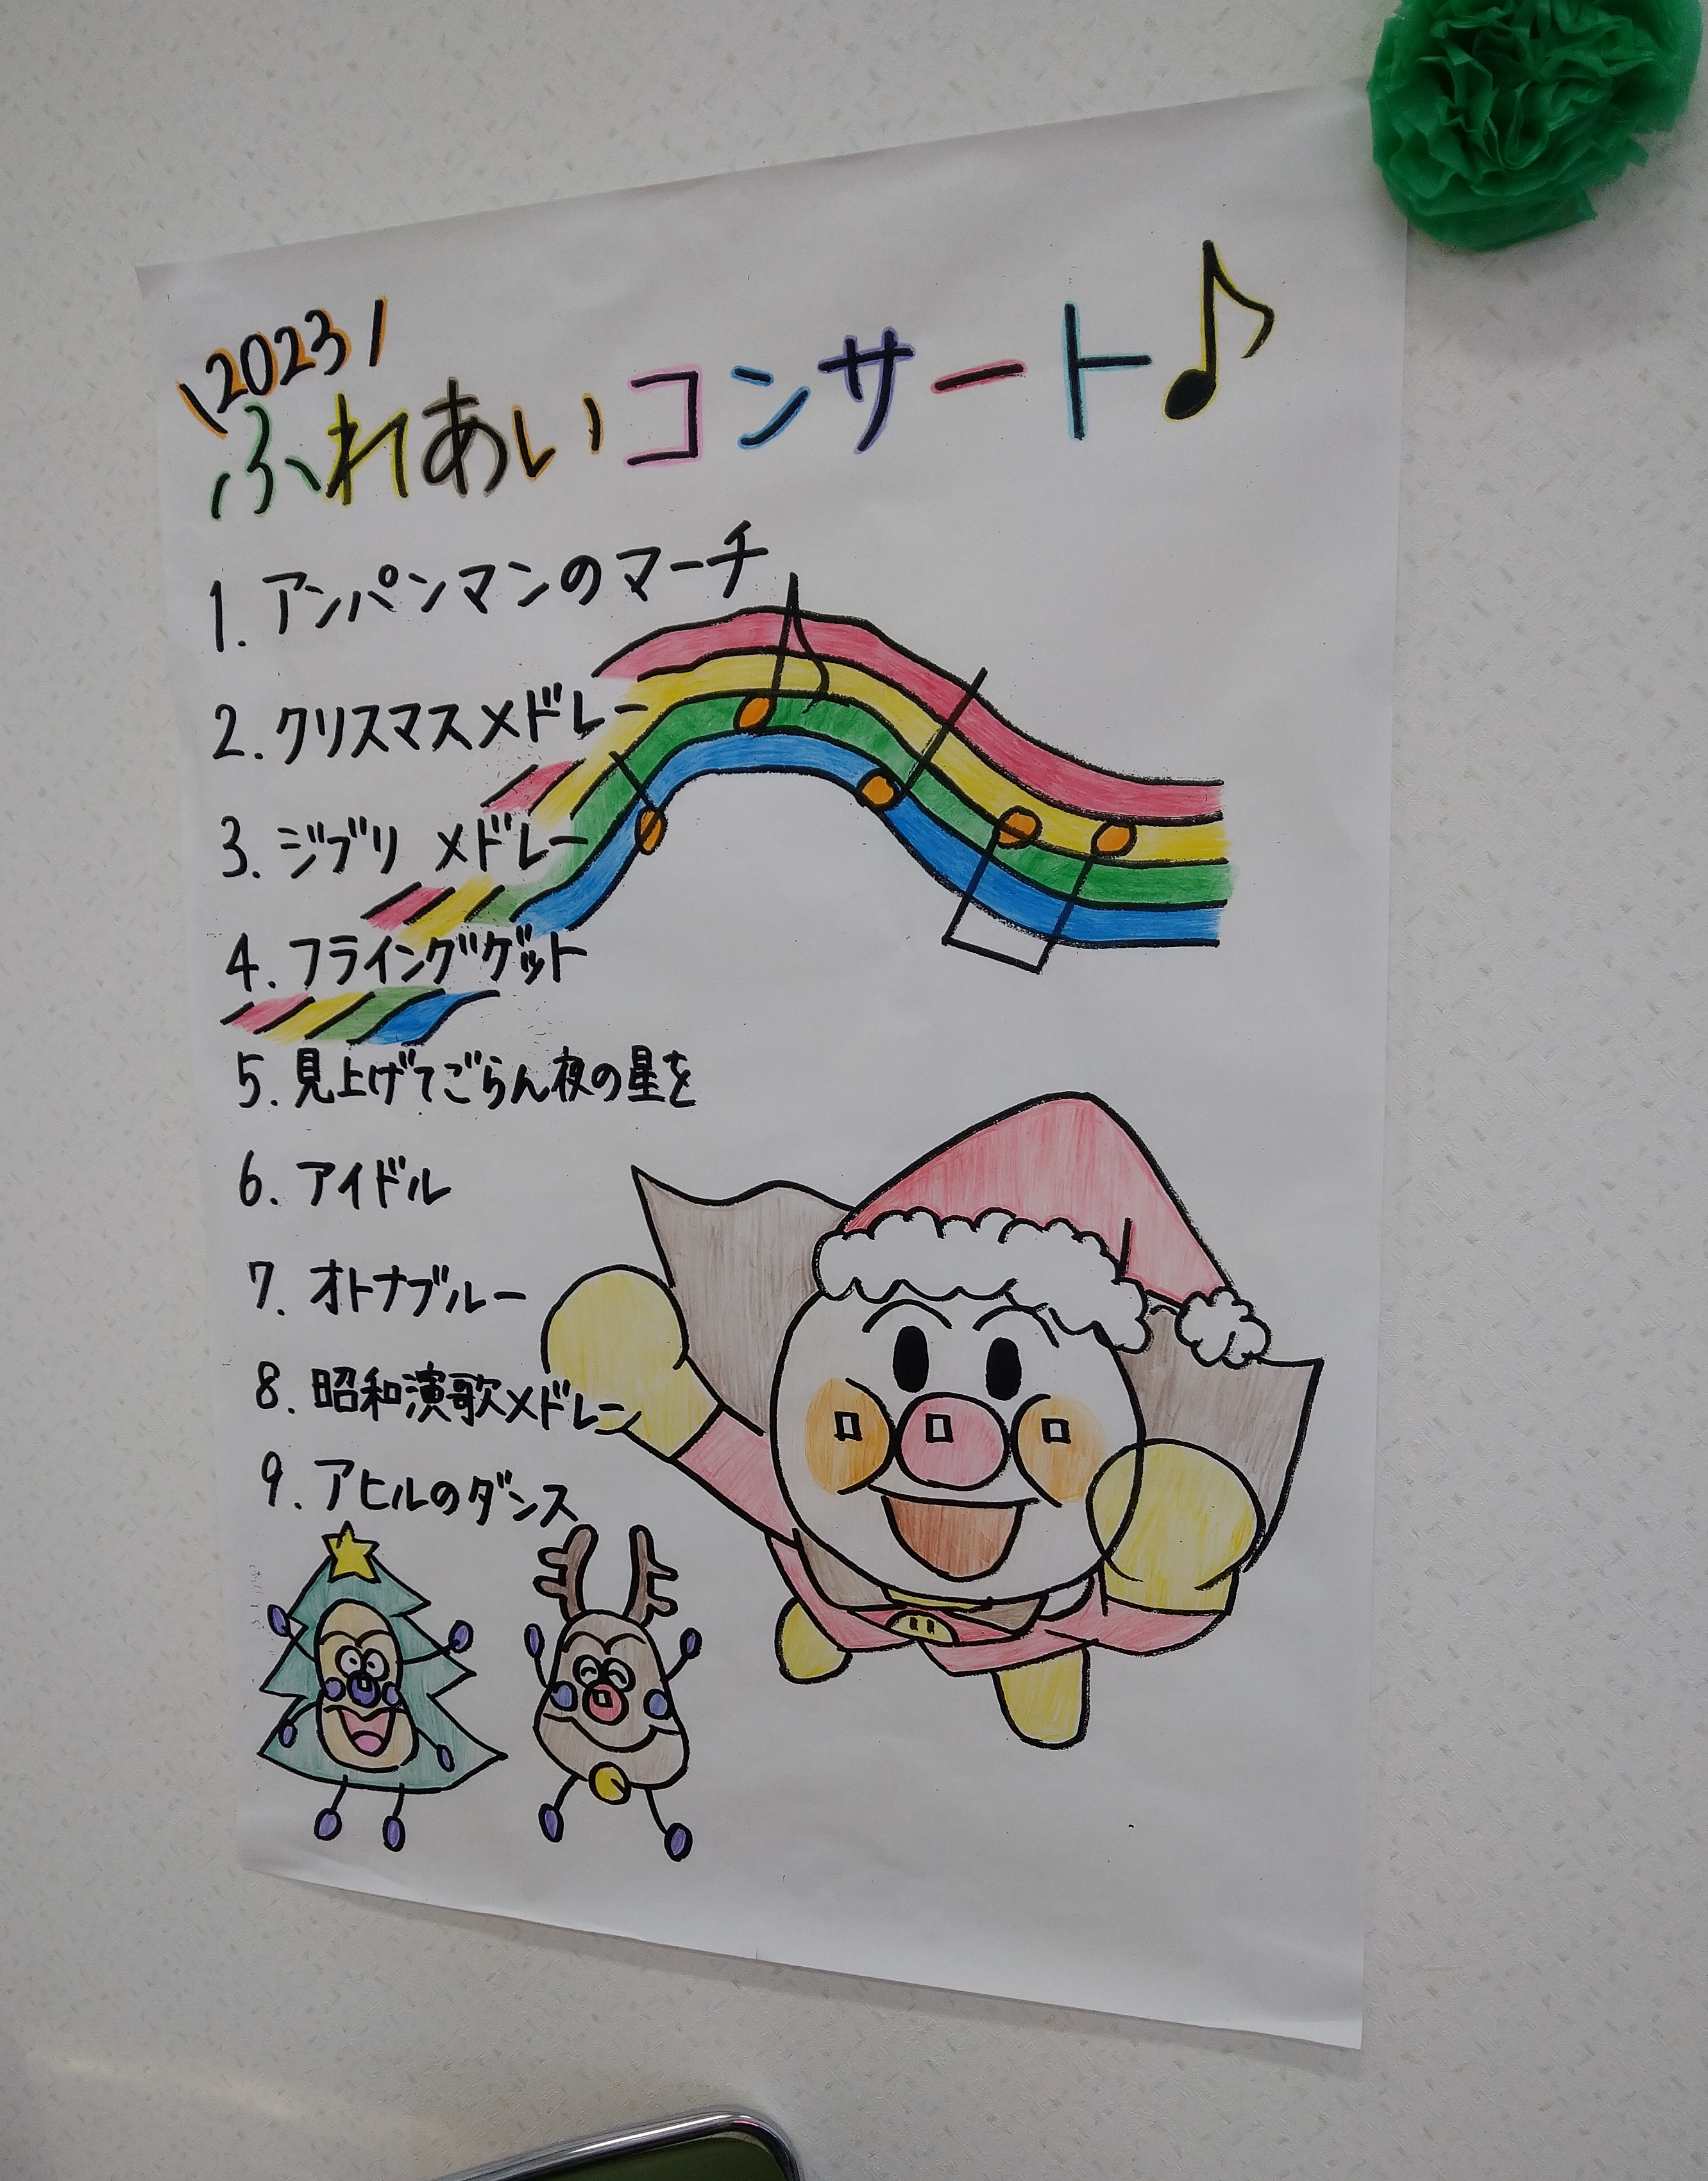 \2023/
ふれあいコンサート♪
1. アンパンマンのマーチ
2. クリスマスメドレー
3. ジブリ メドレー
4. フライングゲット
5. 見上げてごらん夜の星を
6. アイドル
7. オトナブルー
8. 昭和演歌メドレー
9. アヒルのダンス